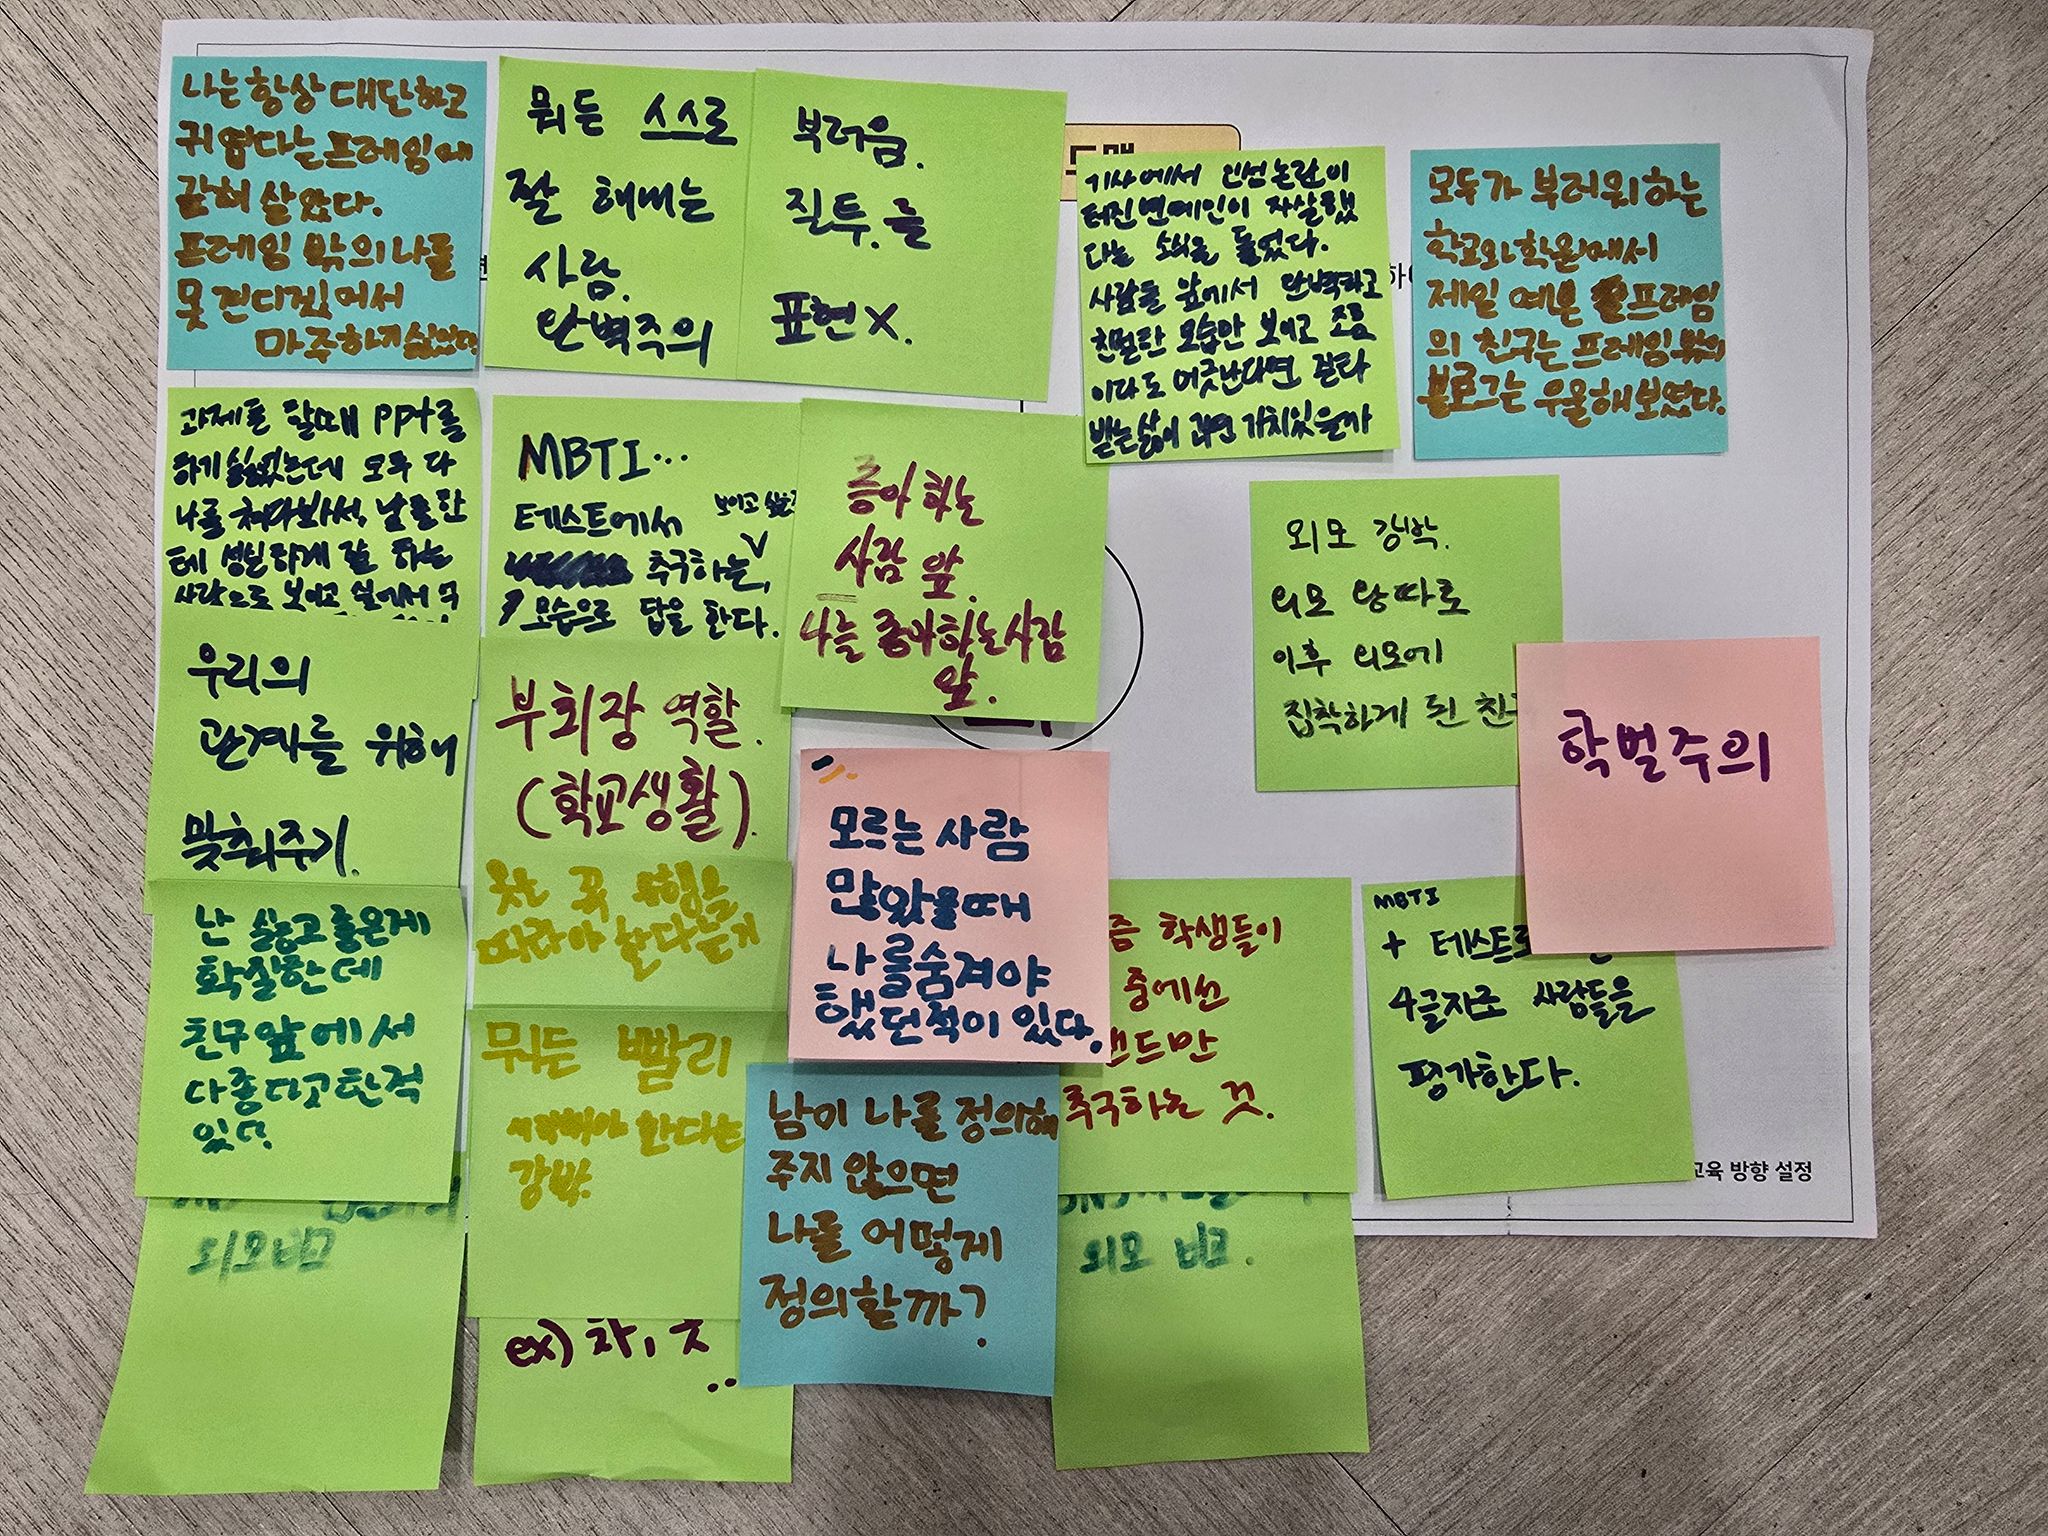 나는 항상 대단하고
귀엽다는 프레임에
갇혀 살았다.
프레임 밖의 나를
못 견디겠어서
마주하기 싫었다.
뭐든 스스로
잘 해내는
사람.
완벽주의
부러움.
질투.를
표현X.
기사에서 인성논란이
터진 연예인이 자살했
다는 소식을 들었다.
사람들 앞에서 완벽하고
친절한 모습만 보이고 조금
이라도 어긋난다면 질타
받는 삶이 과연 가치있을까
모두가 부러워하는
학교와 학원에서
제일 예쁜 프레임
의 친구는 프레임 밖의
블로그는 우울해 보였다.
과제를 할때 ppt를
하기 싫었는데 모두 다
나를 쳐다봐서, 남들한
테 성실하게 잘 하는
사람으로 보이고 싶어서
MBTI...
테스트에서 보이고 싶은
추구하는,
모습으로 답을 한다.
좋아하는
사람 앞.
나를 좋아하는 사람
앞.
외모 강박.
외모 왕따로
이후 외모에
집착하게 된
학벌주의
우리의
관계를 위해
맞춰주기.
부회장 역할.
(학교생활).
모르는 사람
많았을때
나를 숨겨야
했던적이 있다.
난 싫고 좋은게
확실한데
친구앞에서
다좋다고한적
있다.
옷은 꼭 유행을
따라야 한다는거
뭐든 빨리
해야 한다는
강박.
학생들이
중에선
추구하는 것.
MBTI
+ 테스트
4글자로 사람들을
평가한다.
남이 나를 정의해
주지 않으면
나를 어떻게
정의할까?
교육 방향 설정
외모비교
외모 비교.
ex)